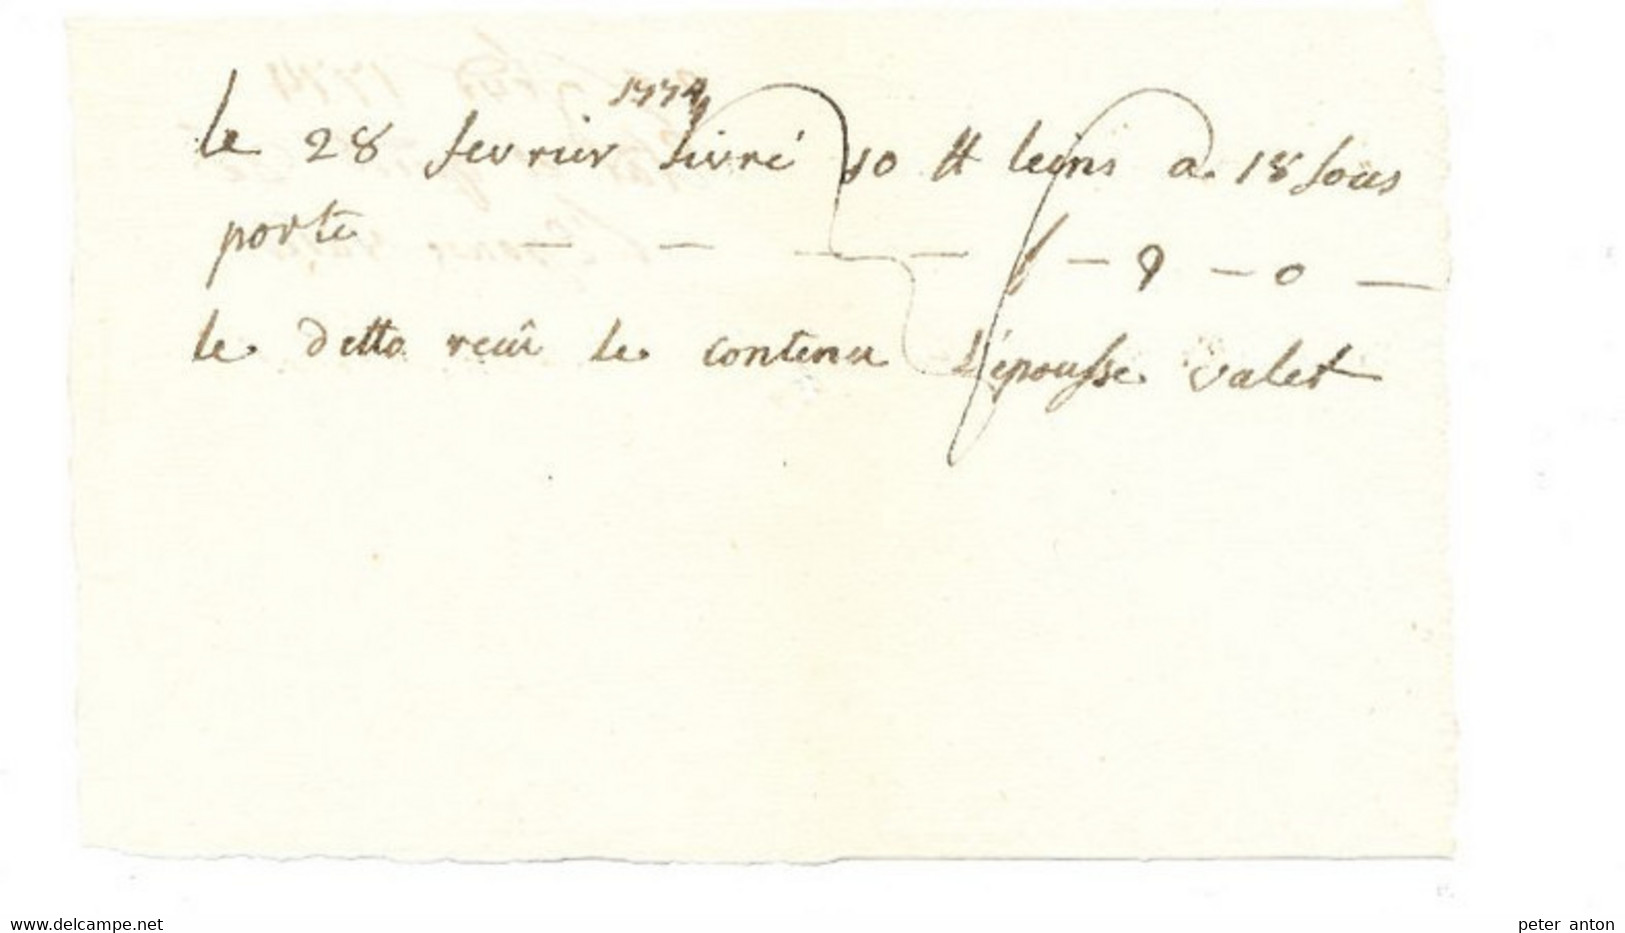 1774
le 28 fevrier livré 10 ₶ leins a 18 sous
porte — — — — ƒ — 9 — 0 —
le detto reçû le contenu L'épousse valet
www.delcampe.net
peter anton